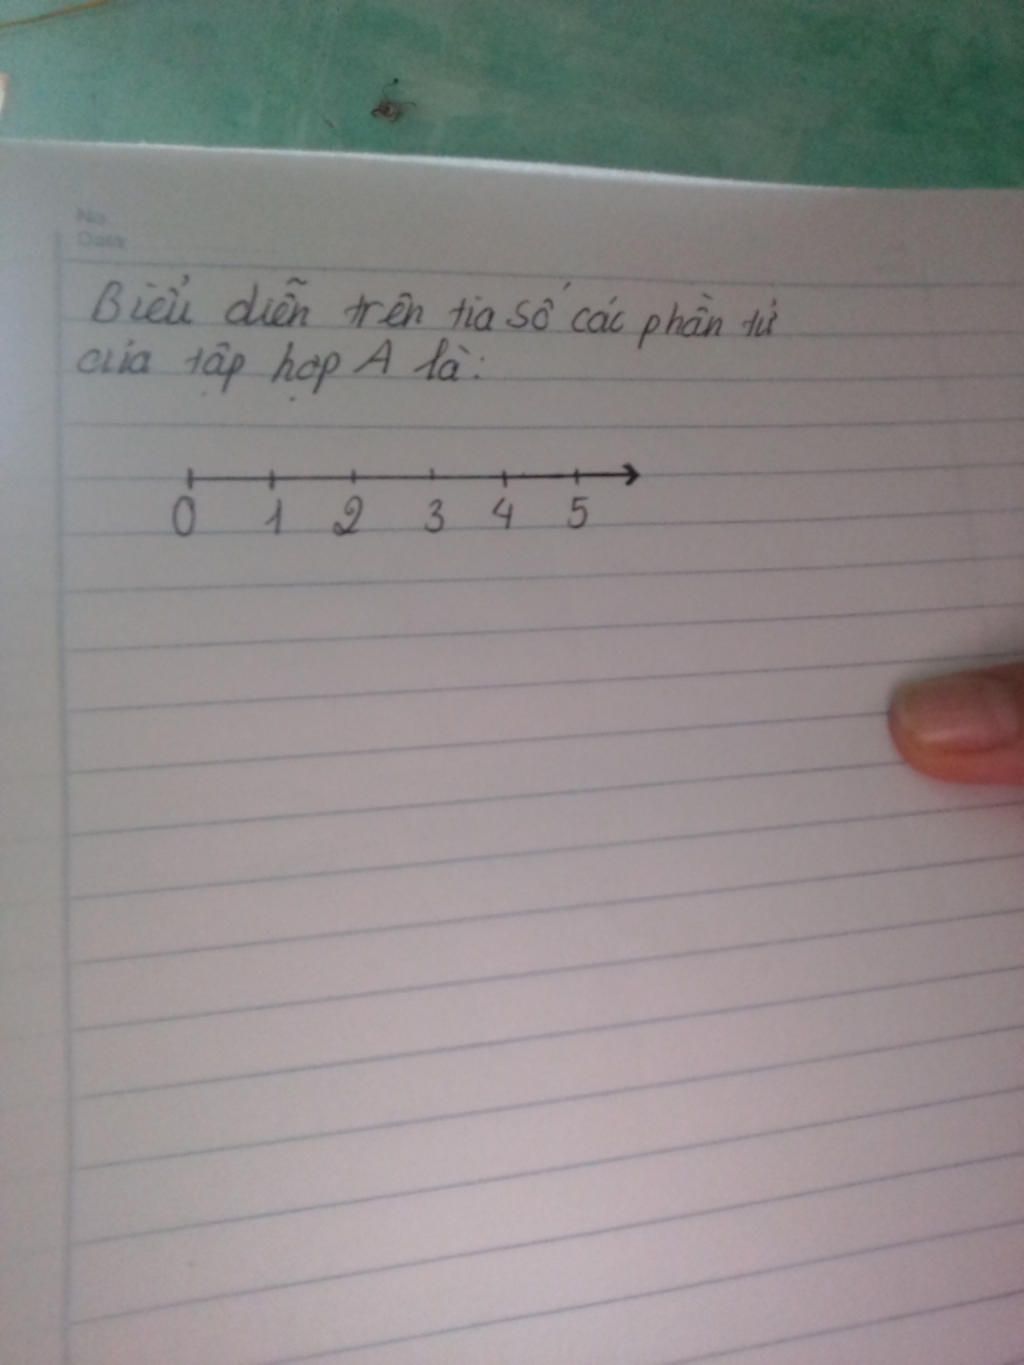 No.
Date
Biểu diễn trên tia số các phần tử
của tập hợp A là:
0 1 2 3 4 5